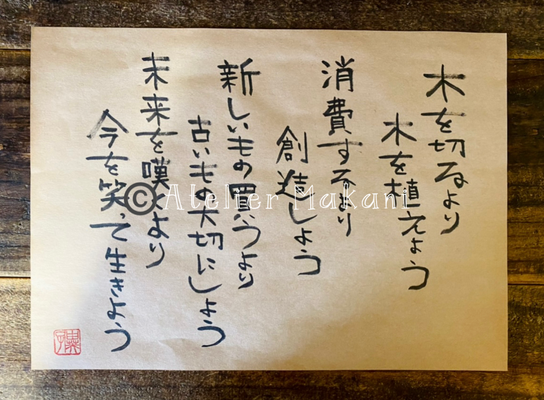 木を切るより
木を植えよう
消費するより
創造しよう
新しいもの買うより
古いもの大切にしよう
未来を嘆くより
今を笑って生きよう
©Atelier Makani